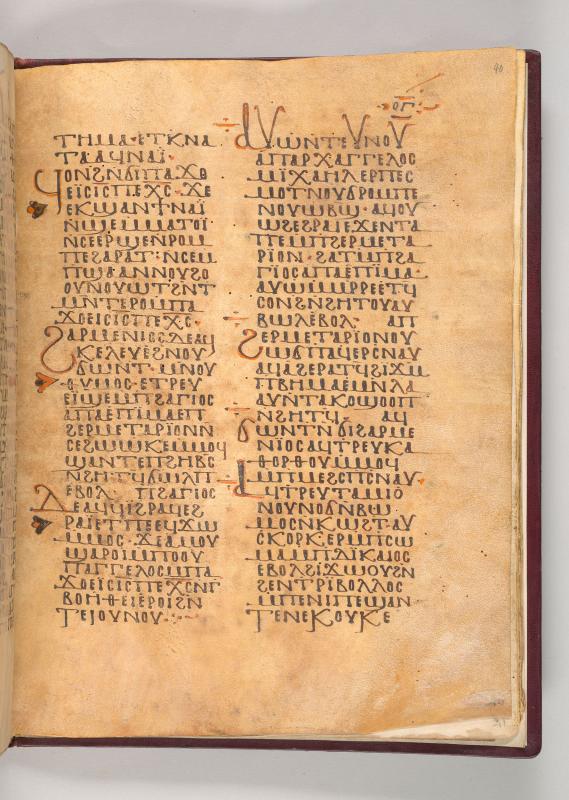 ⲟⲅ
ⲧⲏⲙⲁ·ⲉⲧⲕⲛⲁ
ⲧⲁⲁϥⲛⲁⲓ̈·
ϥⲟⲛϩⲛϭⲓⲡⲁϫⲟ
ⲉⲓⲥⲓⲥⲡⲉⲭⲥ·ϫⲉ
ⲉⲕϣⲁⲛϯⲛⲁⲓ̈
ⲛϣⲉⲙⲙⲁⲧⲟⲓ̈
ⲛⲥⲉⲉⲣϣⲉⲛⲣⲟⲙ
ⲡⲉϩⲁⲣⲁⲧ:ⲛⲥⲉⲙ
ⲡϣⲁⲁⲛⲛⲟⲩϩⲟ
ⲟⲩⲛⲟⲩⲱⲧϩⲛⲧ
ⲙⲛⲧⲉⲣⲟⲙⲡⲁ
ϫⲟⲉⲓⲥⲓⲥⲡⲉⲭⲥ·
ϩⲁⲣⲙⲉⲛⲓⲟⲥⲇⲉⲁϥ
ⲕⲉⲗⲉⲩⲉϩⲛⲟⲩ
ϭⲱⲛⲧ·ⲙⲛⲟⲩ
ⲑⲩⲙⲟⲥ·ⲉⲧⲣⲉⲩ
ⲉⲓϣⲉⲙⲡϩⲁⲅⲓⲟⲥ
ⲁⲡⲁⲉⲡⲓⲙⲁⲉⲡ
ϩⲉⲣⲙⲉⲧⲁⲣⲓⲟⲛⲛ
ⲥⲉϩⲱⲱⲕⲉⲙⲙⲟϥ
ϣⲁⲛⲧⲉⲡϩⲏⲃⲥ
ⲛϩⲏⲧϥϭⲱⲗⲡ
ⲉⲃⲟⲗ· ⲡϩⲁⲅⲓⲟⲥ
ⲇⲉⲁϥϥⲓϩⲣⲁϥⲉϩ
ⲣⲁⲓ̈ⲉⲧⲡⲉⲉϥϫⲱ
ⲙⲙⲟⲥ·ϫⲉⲁⲙⲟⲩ
ϣⲁⲣⲟⲓⲙⲡⲟⲟⲩ
ⲡⲁⲅⲅⲉⲗⲟⲥⲙⲡⲁ
ϫⲟⲉⲓⲥⲓⲥⲡⲉⲭⲥⲛⲅ
ⲃⲟⲏⲑⲉⲓⲉⲣⲟⲓϩⲛ
ⲧⲉⲓⲟⲩⲛⲟⲩ·
ⲁⲩⲱⲛⲧⲉⲩⲛⲟⲩ
ⲁⲡⲁⲣⲭⲁⲅⲅⲉⲗⲟⲥ
ⲙⲓⲭⲁⲏⲗⲉⲣⲡⲉⲥ
ⲙⲟⲧⲛⲟⲩϭⲣⲟⲙⲡⲉ
ⲛⲟⲩⲱⲃϣ·ⲁϥⲟⲩ
ⲱϩⲉϩⲣⲁⲓⲉϫⲉⲛⲧⲁ
ⲡⲉⲙⲡϩⲉⲣⲙⲉⲧⲁ
ⲣⲓⲟⲛ·ϩⲁⲧⲙⲡϩⲁ
ⲅⲓⲟⲥⲁⲡⲁⲉⲡⲓⲙⲁ·
ⲁⲩⲱⲙⲙⲣⲣⲉⲉⲧϥ
ⲥⲟⲛϩⲛϩⲏⲧⲟⲩⲁⲩ
ⲃⲱⲗⲉⲃⲟⲗ· ⲁⲡ
ϩⲉⲣⲙⲉⲧⲁⲣⲓⲟⲛⲟⲩ
ⲱϭⲡⲁϥⲉⲣⲥⲛⲁⲩ
ⲁϥⲁϩⲉⲣⲁⲧϥϩⲓϫⲙ
ⲡⲃⲏⲙⲁⲉⲙⲛⲗⲁ
ⲁⲩⲛⲧⲁⲕⲟϣⲟⲟⲡ
ⲛϩⲏⲧϥ· ⲁϥ
ϭⲱⲛⲧⲛϭⲓϩⲁⲣⲙⲉ
ⲛⲓⲟⲥⲁϥⲧⲣⲉⲩⲕⲁ
ⲑⲟⲣⲑⲟⲩⲙⲙⲟϥ
ⲙⲡⲙⲉϩⲥⲡⲥⲛⲁⲩ·
ⲁϥⲧⲣⲉⲩⲧⲁⲙⲓⲟ
ⲛⲟⲩⲛⲟϭⲛⲃⲱ
ⲙⲟⲥⲛⲕⲱϩⲧ·ⲁⲩ
ⲥⲕⲟⲣⲕⲉⲣⲙⲡⲥⲱ
ⲙⲁⲙⲡⲇⲓⲕⲁⲓⲟⲥ
ⲉⲃⲟⲗϩⲓϫⲱⲟⲩϩⲛ
ϩⲉⲛⲧⲣⲓⲃⲟⲗⲗⲟⲥ
ⲙⲡⲉⲛⲓⲡⲉϣⲁⲛ
ⲧⲉⲛⲉⲕⲟⲩⲕⲉ